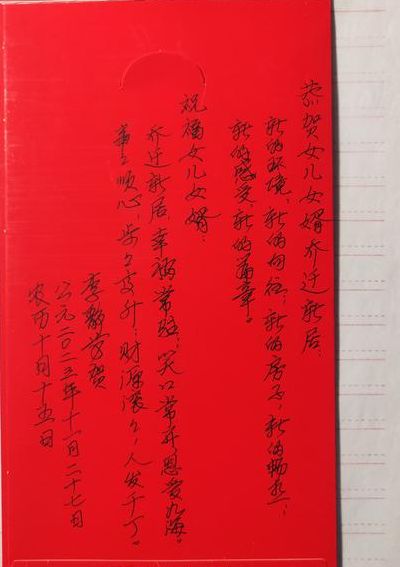 恭贺女儿女婿乔迁新居:
新的环境,新的向往;新的房子,新的畅想;
新的感受,新的篇章。
祝福女儿女婿:
乔迁新居,幸福常驻。笑口常开恩爱九海。
事之顺心,步之高升;财源滚之,人发千丁。
李静芳贺
公元二0二三年十一月二十七日
农历十月十五日